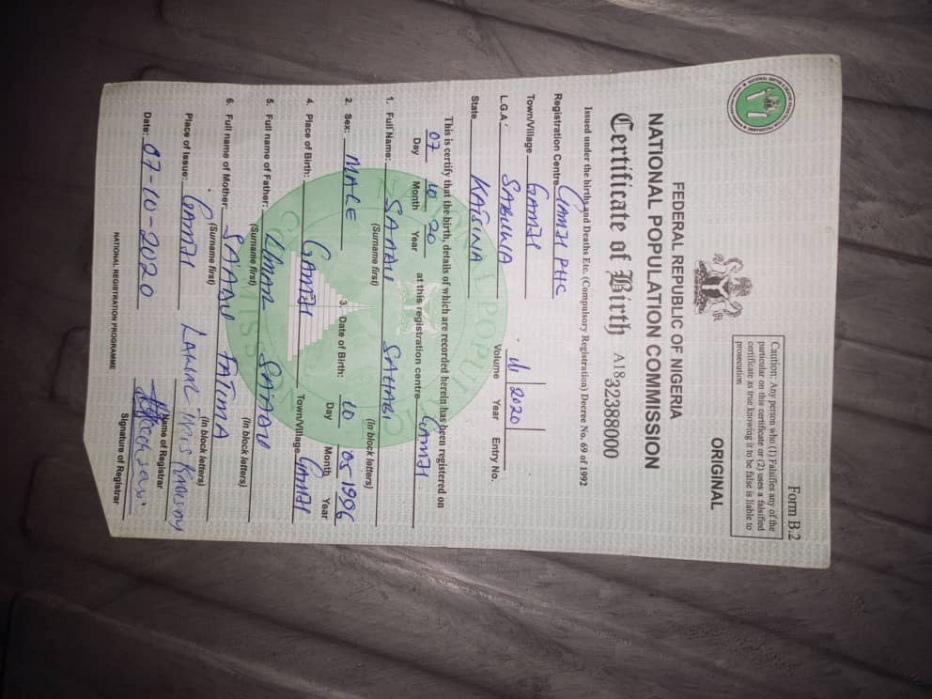 Form B.2
Caution: Any person who (1) Falsifies any of the
particular on this certificate or (2) uses a falsified
certificate as true knowing it to be false is liable to
prosecution
ORIGINAL
FEDERAL REPUBLIC OF NIGERIA
NATIONAL POPULATION COMMISSION
Certificate of Birth A18 3238000
Issued under the birth and Deaths Etc. (Compulsory Registration) Decree No. 69 of 1992
Registration Centre GAMJI PHC
Town/Village GAMJI
L.G.A SABUWA 2020
Volume Year Entry No.
State KATSINA
This is certify that the birth, details of which are recorded herein has been registered on
07 10 20 at this registration centre GAMJI
Day Month Year
1. Full Name: SANI SAHABI
(Surname first) (In block letters)
2. Sex: MALE 3. Date of Birth: 10 05 1996
Day Month Year
4. Place of Birth: GAMJI Town/Village GAMJI
5. Full name of Father: UMAR SA'ADU
(Surname first) (In block letters)
6. Full name of Mother: SA'ADU FATIMA
(Surname first) (In block letters)
Place of Issue: GAMJI LAWAL
Name of Registrar
Date: 07-10-2020
Signature of Registrar
NATIONAL REGISTRATION PROGRAMME